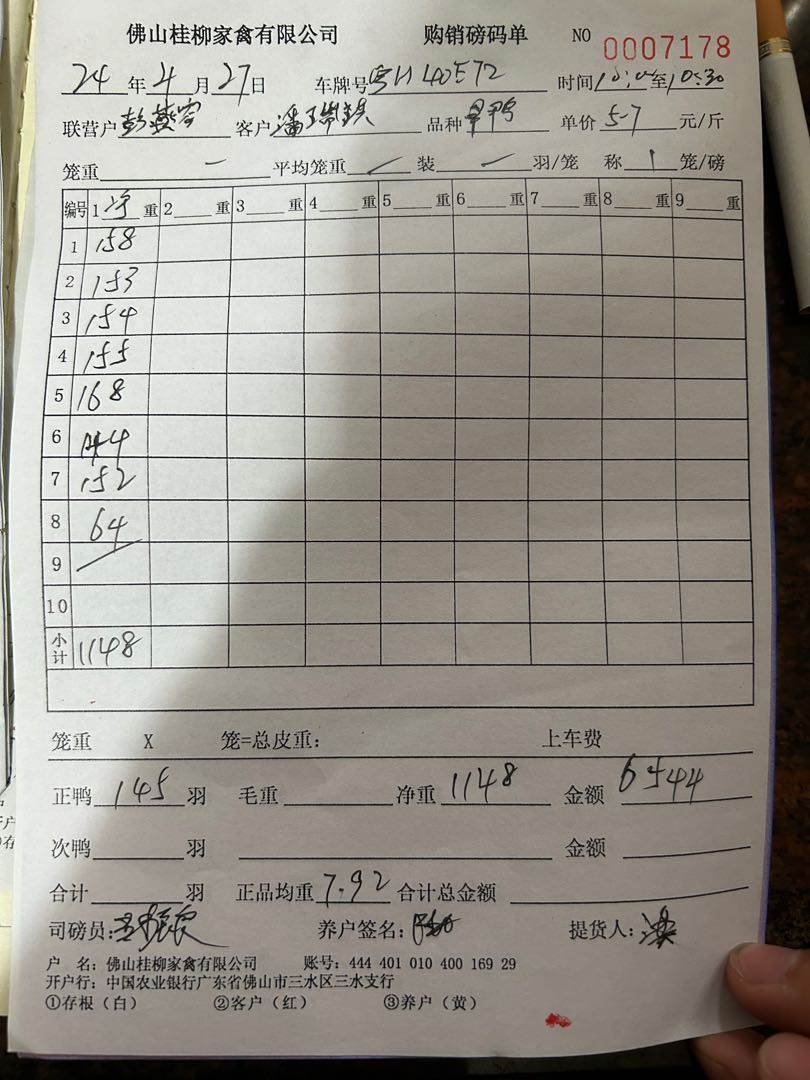 佛山桂柳家禽有限公司 购销磅码单 NO 0007178
24年4月27日 车牌号粤H40E72 时间10:05至10:30
联营户彭燕容 客户潘瑞 品种旱鸭 单价5-7元/斤
笼重 一 平均笼重 一 装 一 羽/笼 称 1 笼/磅
编号 1净重 2 重 3 重 4 重 5 重 6 重 7 重 8 重 9 重
1 158
2 153
3 154
4 155
5 168
6 144
7 152
8 64
9
10
小计 1148
笼重 X 笼=总皮重: 上车费
正鸭 145 羽 毛重 净重 1148 金额 6544
次鸭 羽 金额
合计 羽 正品均重 7.92 合计总金额
司磅员: 养户签名: 提货人:
户 名:佛山桂柳家禽有限公司 账号:444 401 010 400 169 29
开户行:中国农业银行广东省佛山市三水区三水支行
①存根(白) ②客户(红) ③养户(黄)